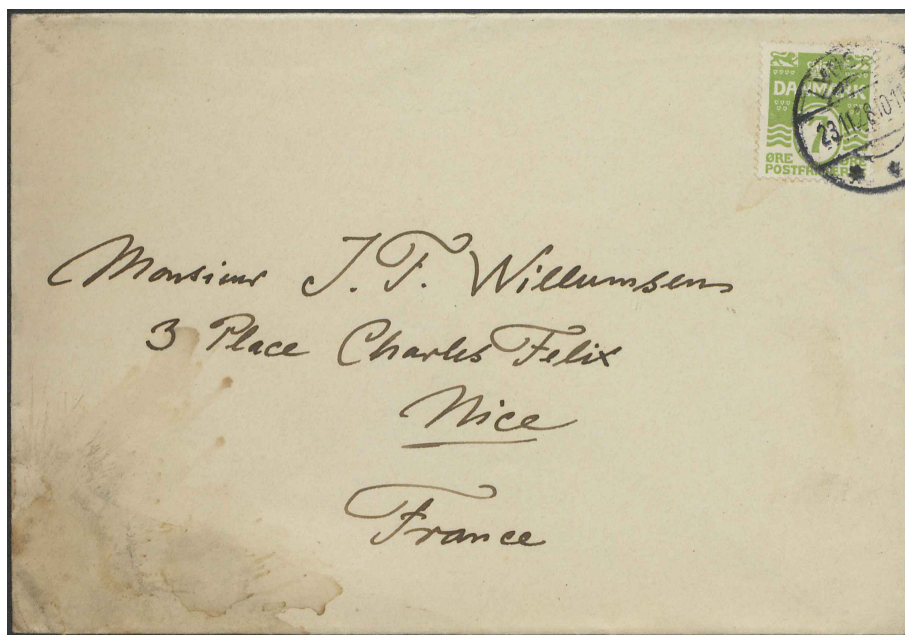 DANMARK
7
ØRE ØRE
POSTFRIMÆRKE
23.11.26.10-11
Monsieur J. F. Willumsen
3 Place Charles Felix
Nice
France